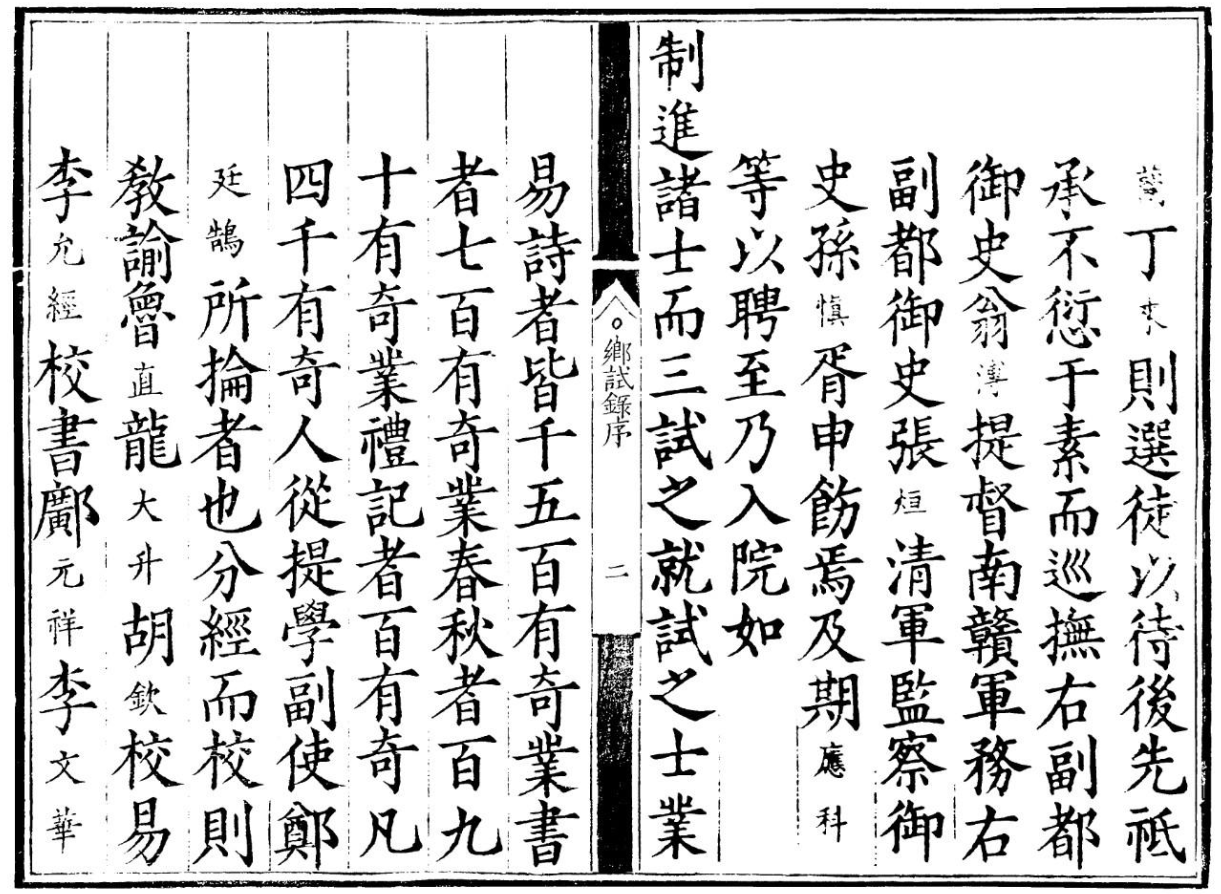 丁 則選徒以待後先祗
承不愆于素而巡撫右副都
御史翁溥提督南贛軍務右
副都御史張烜清軍監察御
史孫慎胥申飭焉及期應科
等以聘至乃入院如
制進諸士而三試之就試之士業
鄉試錄序
二
易詩者皆千五百有奇業書
者七百有奇業春秋者百九
十有奇業禮記者百有奇凡
四千有奇人從提學副使鄭
廷鵠所掄者也分經而校則
教諭魯直龍大升胡欽校易
李允經校書鄺元祥李文華